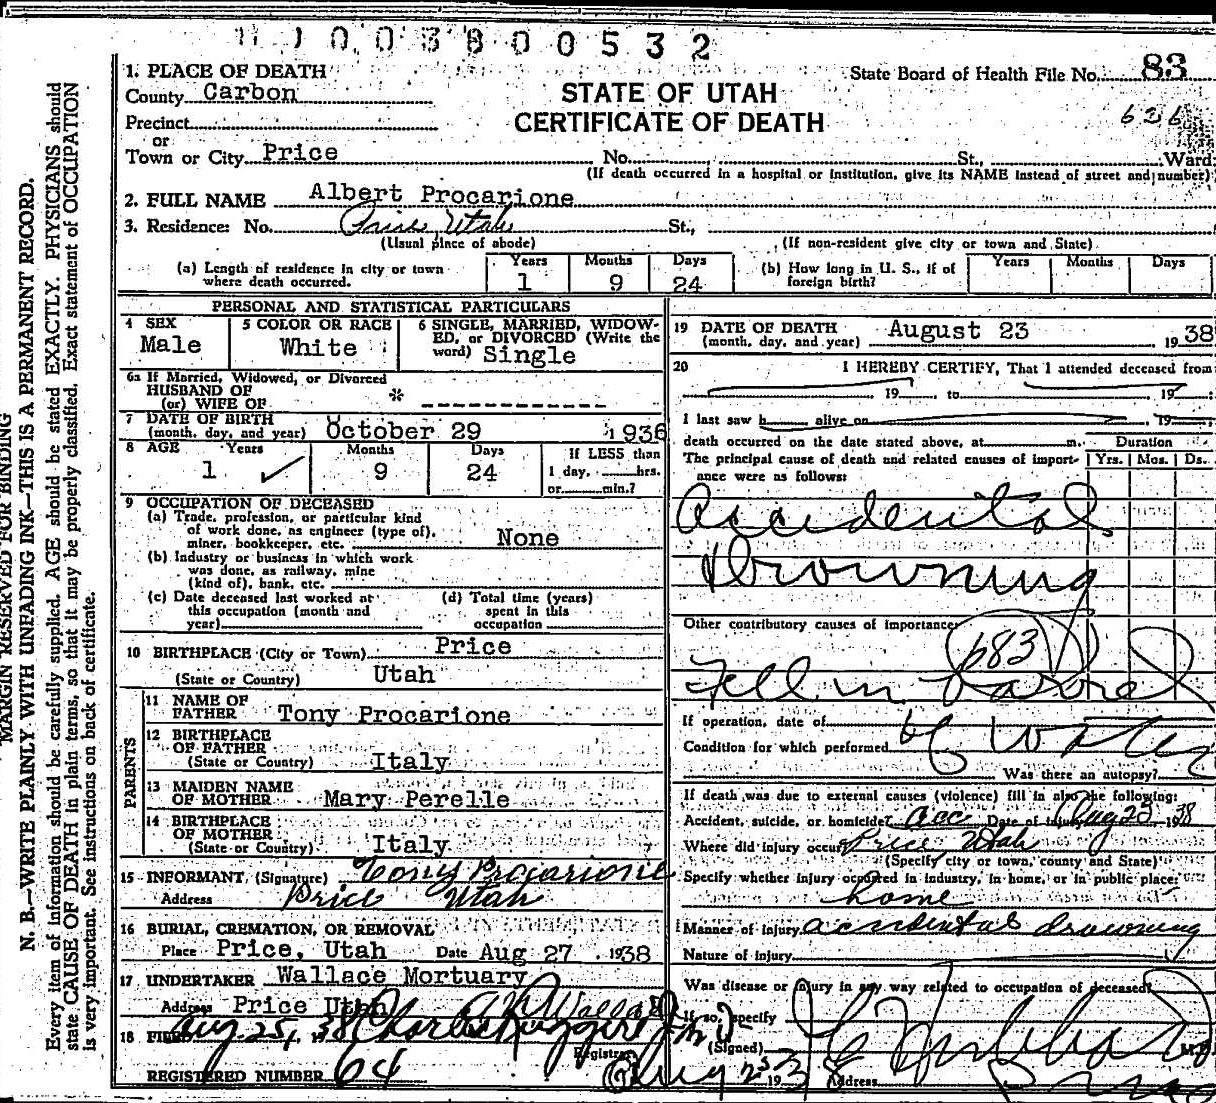 11003800532
State Board of Health File No. 83
626
STATE OF UTAH
CERTIFICATE OF DEATH
1. PLACE OF DEATH
County Carbon
Precinct
or
Town or City Price No. St., Ward
(If death occurred in a hospital or institution, give its NAME instead of street and number)
2. FULL NAME Albert Procarione
3. Residence: No. Price, Utah St.,
(Usual place of abode) (If non-resident give city or town and State)
(a) Length of residence in city or town where death occurred. Years 1 Months 9 Days 24
(b) How long in U. S., if of foreign birth? Years Months Days
PERSONAL AND STATISTICAL PARTICULARS
4 SEX Male
5 COLOR OR RACE White
6 SINGLE, MARRIED, WIDOWED, or DIVORCED (Write the word) Single
6a If Married, Widowed, or Divorced
HUSBAND OF
(or) WIFE OF * -------------
7 DATE OF BIRTH
(month, day, and year) October 29 1936
8 AGE Years 1 Months 9 Days 24
If LESS than
1 day, hrs.
or min.?
9 OCCUPATION OF DECEASED
(a) Trade, profession, or particular kind
of work done, as engineer (type of),
miner, bookkeeper, etc. None
(b) Industry or business in which work
was done, as railway, mine
(kind of), bank, etc.
(c) Date deceased last worked at
this occupation (month and
year)
(d) Total time (years)
spent in this
occupation
10 BIRTHPLACE (City or Town) Price
(State or Country) Utah
PARENTS
11 NAME OF
FATHER Tony Procarione
12 BIRTHPLACE
OF FATHER
(State or Country) Italy
13 MAIDEN NAME
OF MOTHER Mary Perelle
14 BIRTHPLACE
OF MOTHER
(State or Country) Italy
15 INFORMANT, (Signature) Tony Procarione
Address Price Utah
16 BURIAL, CREMATION, OR REMOVAL
Place Price, Utah Date Aug 27 1938
17 UNDERTAKER Wallace Mortuary
Address Price Utah
18 FILED Aug 25, 38
Registrar
REGISTERED NUMBER 64
19 DATE OF DEATH
(month, day, and year) August 23 1938
20 I HEREBY CERTIFY, That I attended deceased from
19 to 19
I last saw h alive on 19
death occurred on the date stated above, at m.
Duration
The principal cause of death and related causes of importance were as follows:
Yrs. Mos. Ds.
Accidental
Drowning
Other contributory causes of importance:
183
Fell in Barrel
of Water
If operation, date of
Condition for which performed
Was there an autopsy?
If death was due to external causes (violence) fill in also the following:
Accident, suicide, or homicide? Acc Date of injury Aug 23 1938
Where did injury occur? Price Utah
(Specify city or town, county and State)
Specify whether injury occurred in industry, in home, or in public place:
home
Manner of injury accidental drowning
Nature of injury
Was disease or injury in any way related to occupation of deceased?
If so, specify
(Signed) M.D.
Address
MARGIN RESERVED FOR BINDING
N. B.—WRITE PLAINLY WITH UNFADING INK—THIS IS A PERMANENT RECORD.
Every item of information should be carefully supplied. AGE should be stated EXACTLY. PHYSICIANS should
state CAUSE OF DEATH in plain terms, so that it may be properly classified. Exact statement of OCCUPATION
is very important. See instructions on back of certificate.